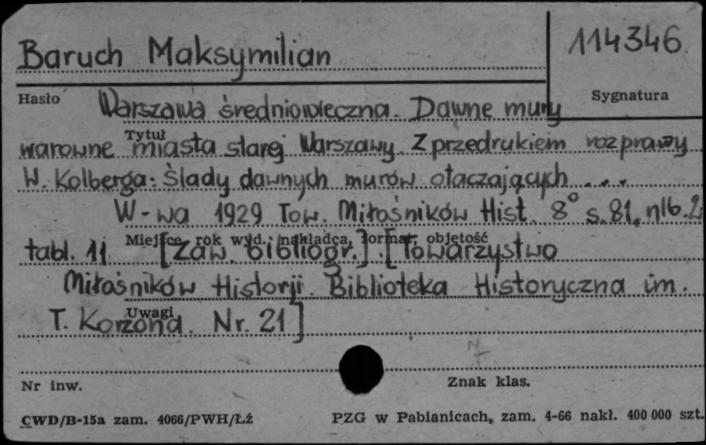 Baruch Maksymilian
114346
Hasło
Sygnatura
Warszawa średniowieczna. Dawne mury
Tytuł
warowne miasta starej Warszawy. Z przedrukiem rozprawy
W. Kolberga: Ślady dawnych murów otaczających ...
W-wa 1929 Tow. Miłośników Hist. 8° s. 81, nlb. 2
Miejsce, rok wyd., nakładca, format, objętość
tabl. 11 [Zaw. bibliogr.]. [Towarzystwo
Miłośników Historji. Biblioteka Historyczna im.
Uwagi
T. Korzona. Nr. 21]
Nr inw.
Znak klas.
CWD/B-15a zam. 4066/PWH/ŁŻ
PZG w Pabianicach, zam. 4-66 nakł. 400 000 szt.